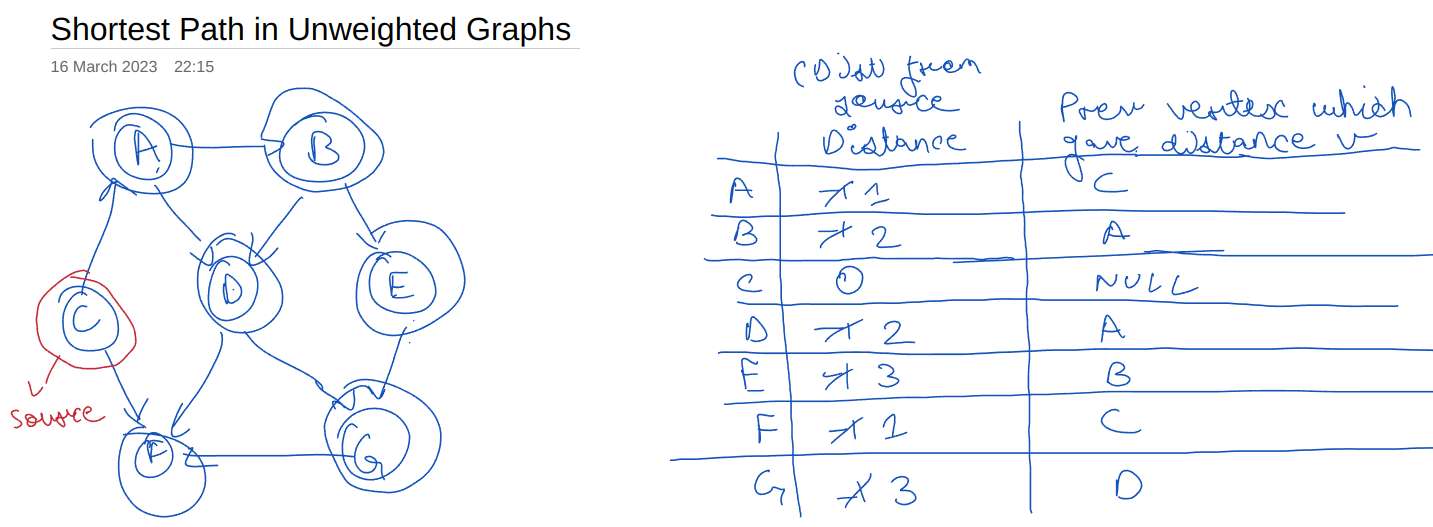 Shortest Path in Unweighted Graphs
16 March 2023 22:15
A
B
C
D
E
F
G
Source
(Dist) from
source
Distance
Prev vertex which
gave distance
A 1 C
B 2 A
C 0 NULL
D 2 A
E 3 B
F 1 C
G 3 D